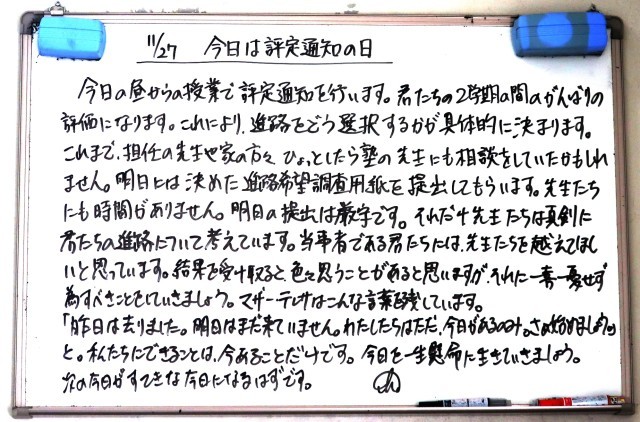 11/27 今日は評定通知の日
今日の昼からの授業で評定通知を行います。君たちの2学期の間のがんばりの
評価になります。これにより、進路をどう選択するかが具体的に決まります。
これまで、担任の先生や家の方々、ひょっとしたら塾の先生にも相談をしていたかもしれ
ません。明日には決めた進路希望調査用紙を提出してもらいます。先生たち
にも時間がありません。明日の提出は厳守です。それだけ先生たちは真剣に
君たちの進路について考えています。当事者である君たちには、先生たちを越えてほし
いと思っています。結果を受け取ると、色々思うことがあると思いますが、それに一喜一憂せず
為すべきことをしていきましょう。マザーテレサはこんな言葉を残しています。
「昨日は去りました。明日はまだ来ていません。わたしたちはただ、今日があるのみ。さぁ始めましょう」
と。私たちにできることは、今あることだけです。今日を一生懸命に生きていきましょう。
次の今日がすてきな今日になるはずです。